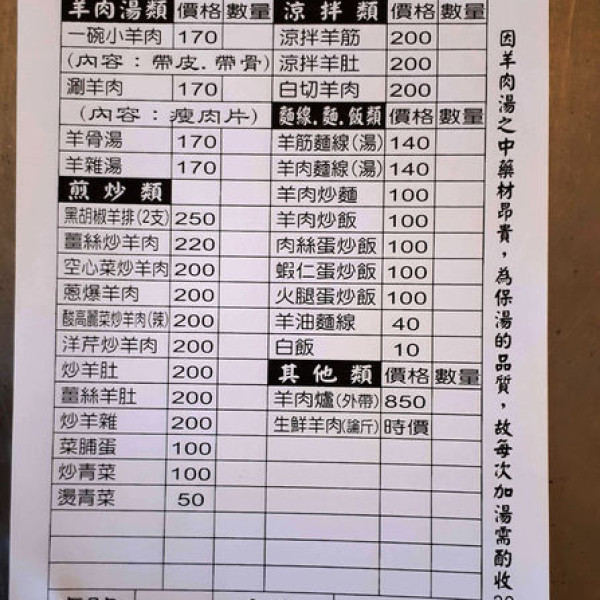 羊肉湯類 價格 數量
一碗小羊肉 170
(內容：帶皮.帶骨)
涮羊肉 170
(內容：瘦肉片)
羊骨湯 170
羊雜湯 170
煎炒類
黑胡椒羊排(2支) 250
薑絲炒羊肉 220
空心菜炒羊肉 200
蔥爆羊肉 200
酸高麗菜炒羊肉(辣) 200
洋芹炒羊肉 200
炒羊肚 200
薑絲羊肚 200
炒羊雜 200
菜脯蛋 100
炒青菜 100
燙青菜 50
涼拌類 價格 數量
涼拌羊筋 200
涼拌羊肚 200
白切羊肉 200
麵線.麵.飯類 價格 數量
羊筋麵線(湯) 140
羊肉麵線(湯) 140
羊肉炒麵 100
羊肉炒飯 100
肉絲蛋炒飯 100
蝦仁蛋炒飯 100
火腿蛋炒飯 100
羊油麵線 40
白飯 10
其他類 價格 數量
羊肉爐(外帶) 850
生鮮羊肉(論斤) 時價
因羊肉湯之中藥材昂貴，為保湯的品質，故每次加湯需酌收